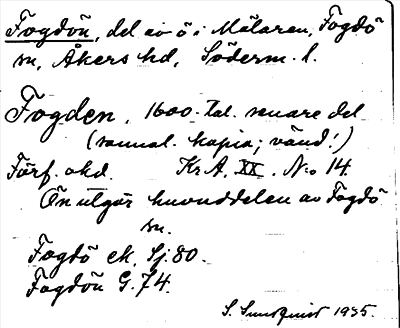 Fogdön, del av ö i Mälaren, Fogdö
sn, Åkers hd, Söderm. l.
Fogden. 1600-tal. senare del
(samml. kopia; vänd!)
Förf. okd. Kr A. XX. No 14.
Ön utgör huvuddelen av Fogdö
sn.
Fogdö ek. Sj. 80.
Fogdön G. 74.
S. Sundquist 1935.